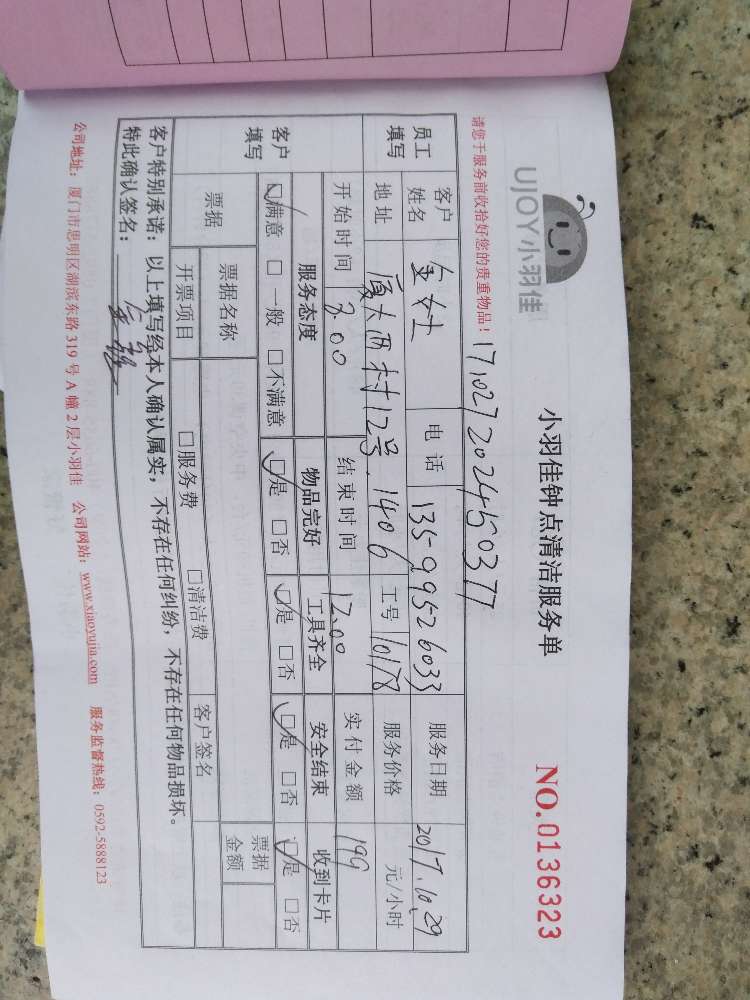 UJOY小羽佳
小羽佳钟点清洁服务单
NO.0136323
请您于服务前收拾好您的贵重物品！
员工填写 客户姓名 电话 13599526033 服务日期 2017.10.29
地址 厦大西村12号.1406 工号 10178 服务价格 元/小时
开始时间 结束时间 12.00 实付金额 199
客户填写 服务态度 物品完好 工具齐全 安全结束 收到卡片
☑满意 □一般 □不满意 ☑是 □否 ☑是 □否 ☑是 □否 ☑是 □否
票据 票据名称 客户签名 票据金额
开票项目 □服务费 □清洁费
客户特别承诺：以上填写经本人确认属实，不存在任何纠纷，不存在任何物品损坏。
特此确认签名：
公司地址：厦门市思明区湖滨东路 319 号 A 幢 2 层小羽佳 公司网站：www.xiaoyujia.com 服务监督热线：0592-5888123